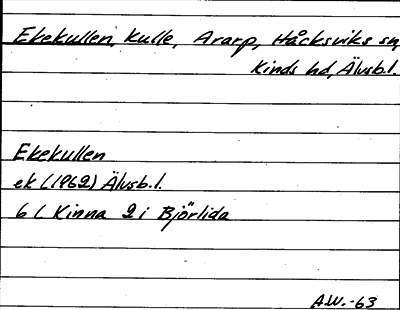 Ekekullen, kulle, Ararp, Håcksviks sn,
Kinds hd, Älvsb.l.
Ekekullen
ek (1962) Älvsb.l.
6 C Kinna 2 i Björlida
A.W.-63